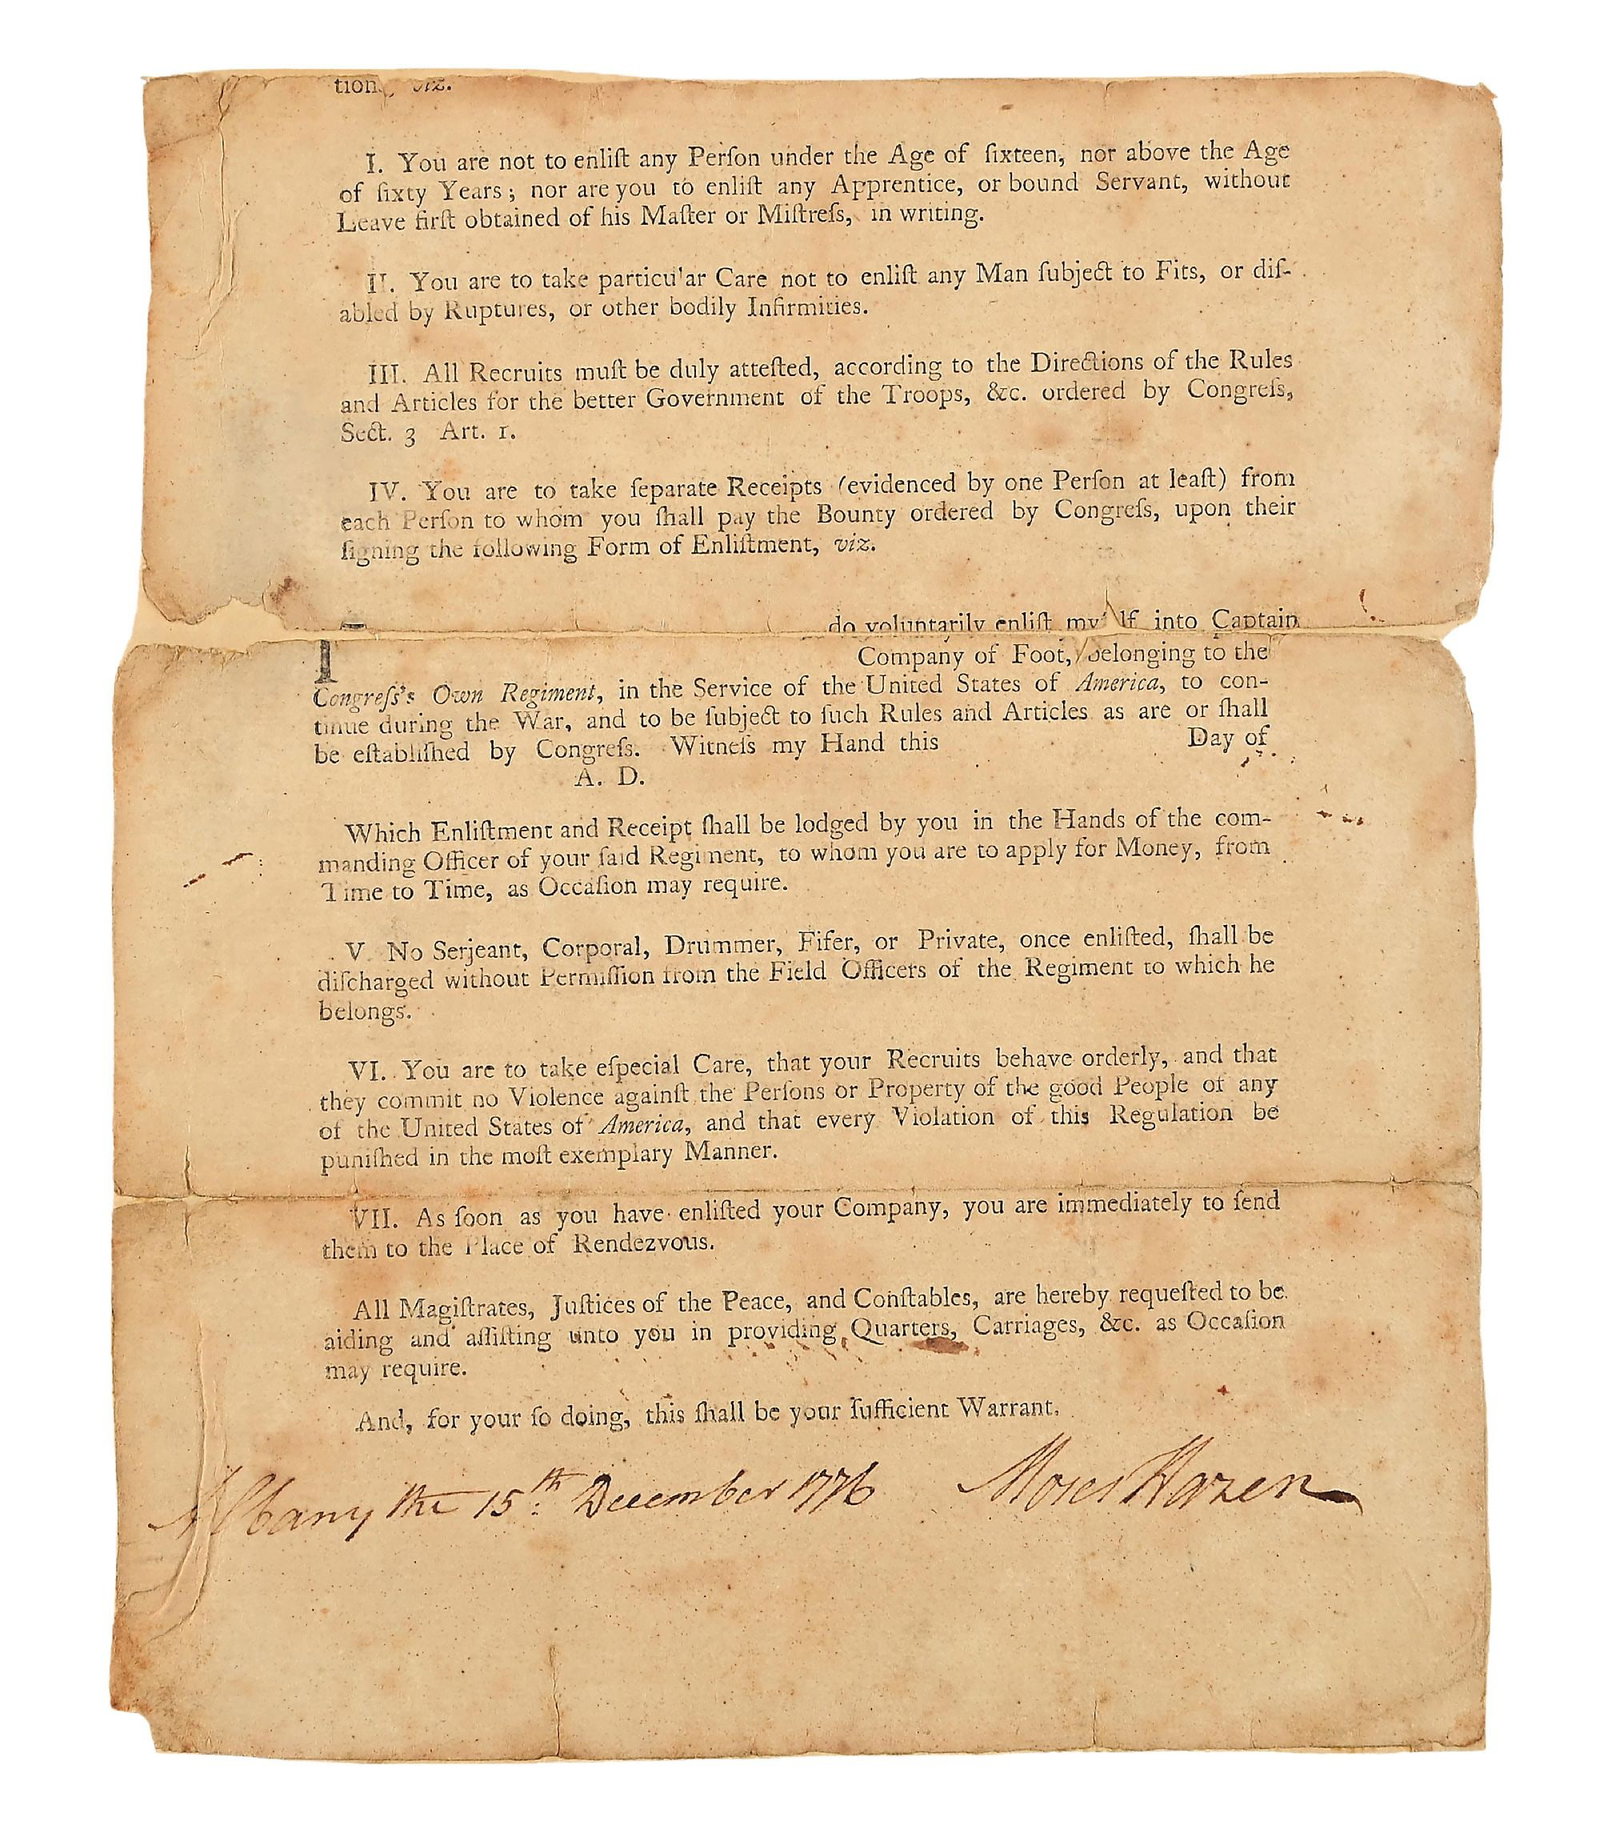 tion, viz.
I. You are not to enliſt any Perſon under the Age of ſixteen, nor above the Age
of ſixty Years; nor are you to enliſt any Apprentice, or bound Servant, without
Leave firſt obtained of his Maſter or Miſtreſs, in writing.
II. You are to take particular Care not to enliſt any Man ſubject to Fits, or diſ-
abled by Ruptures, or other bodily Infirmities.
III. All Recruits muſt be duly atteſted, according to the Directions of the Rules
and Articles for the better Government of the Troops, &c. ordered by Congreſs,
Sect. 3 Art. 1.
IV. You are to take ſeparate Receipts (evidenced by one Perſon at leaſt) from
each Perſon to whom you ſhall pay the Bounty ordered by Congreſs, upon their
ſigning the following Form of Enliſtment, viz.
I do voluntarily enliſt myſelf into Captain
Company of Foot, belonging to the
Congreſs's Own Regiment, in the Service of the United States of America, to con-
tinue during the War, and to be ſubject to ſuch Rules and Articles as are or ſhall
be eſtabliſhed by Congreſs. Witneſs my Hand this Day of
A. D.
Which Enliſtment and Receipt ſhall be lodged by you in the Hands of the com-
manding Officer of your ſaid Regiment, to whom you are to apply for Money, from
Time to Time, as Occaſion may require.
V. No Serjeant, Corporal, Drummer, Fifer, or Private, once enliſted, ſhall be
diſcharged without Permiſſion from the Field Officers of the Regiment to which he
belongs.
VI. You are to take eſpecial Care, that your Recruits behave orderly, and that
they commit no Violence againſt the Perſons or Property of the good People of any
of the United States of America, and that every Violation of this Regulation be
puniſhed in the moſt exemplary Manner.
VII. As ſoon as you have enliſted your Company, you are immediately to ſend
them to the Place of Rendezvous.
All Magiſtrates, Juſtices of the Peace, and Conſtables, are hereby requeſted to be
aiding and aſſiſting unto you in providing Quarters, Carriages, &c. as Occaſion
may require.
And, for your ſo doing, this ſhall be your ſufficient Warrant.
Albany the 15th. December 1776 Moses Hazen